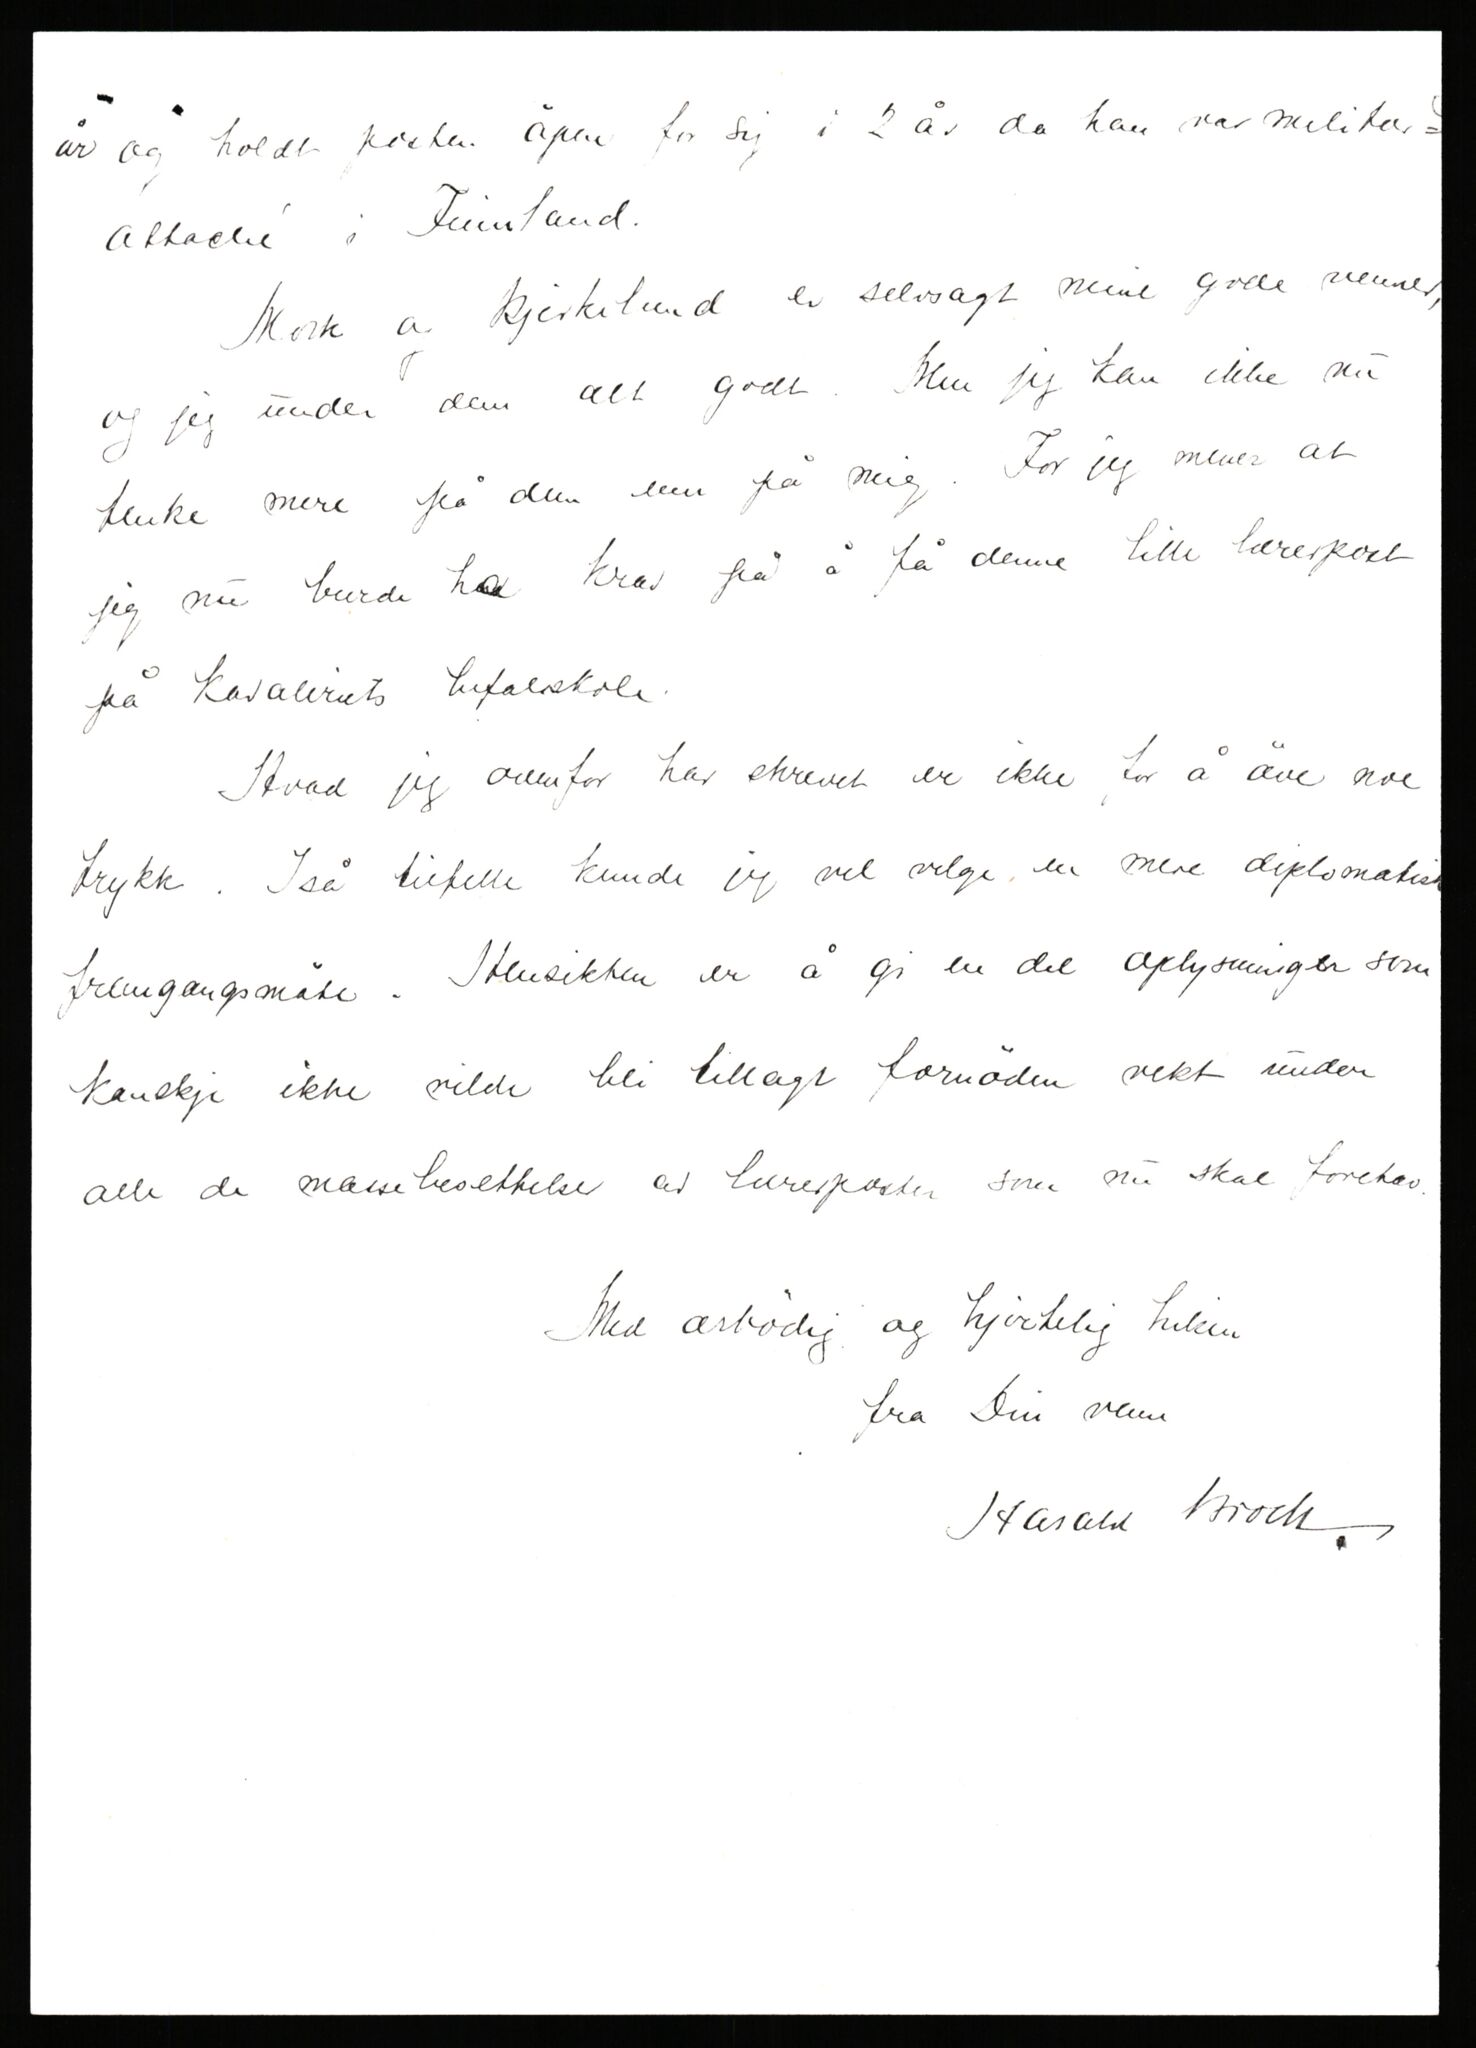 år og holdt posten åpen for sig i 2 år da han var militær=
attaché i Finnland.
Mork og Bjerkelund er selvsagt mine gode venner,
og jeg under dem alt godt. Men jeg kan ikke nu
tenke mere på dem enn på mig. For jeg mener at
jeg nu burde ha krav på å få denne lille lærerpost
på Kavaleriets befalsskole.
Hvad jeg ovenfor har skrevet er ikke for å öve noe
trykk. I så tilfelle kunde jeg vel velge en mere diplomatisk
fremgangsmåte. Hensikten er å gi en del oplysninger som
kanskje ikke vilde bli tillagt fornöden vekt under
alle de massebesettelser av lærerposter som nu skal foretas.
Med ærbödig og hjertelig hilsen
fra Din venn
Harald Broch.